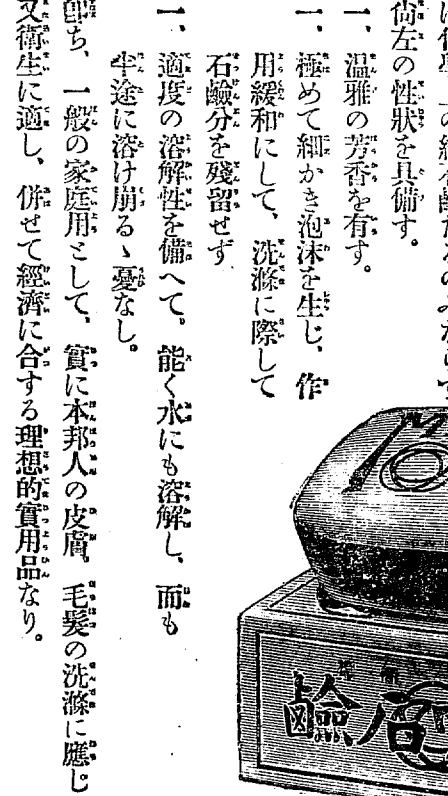 尚左の性狀を具備す。
一、溫雅の芳香を有す。
一、極めて細かき泡沫を生じ、作
用緩和にして、洗滌に際して
石鹼分を殘留せず
一、適度の溶解性を備へて。能く水にも溶解し、而も
半途に溶け崩るゝ憂なし。
卽ち、一般の家庭用として、實に本邦人の皮膚、毛髮の洗滌に應じ
又衞生に適し、併せて經濟に合する理想的實用品なり。
石鹼